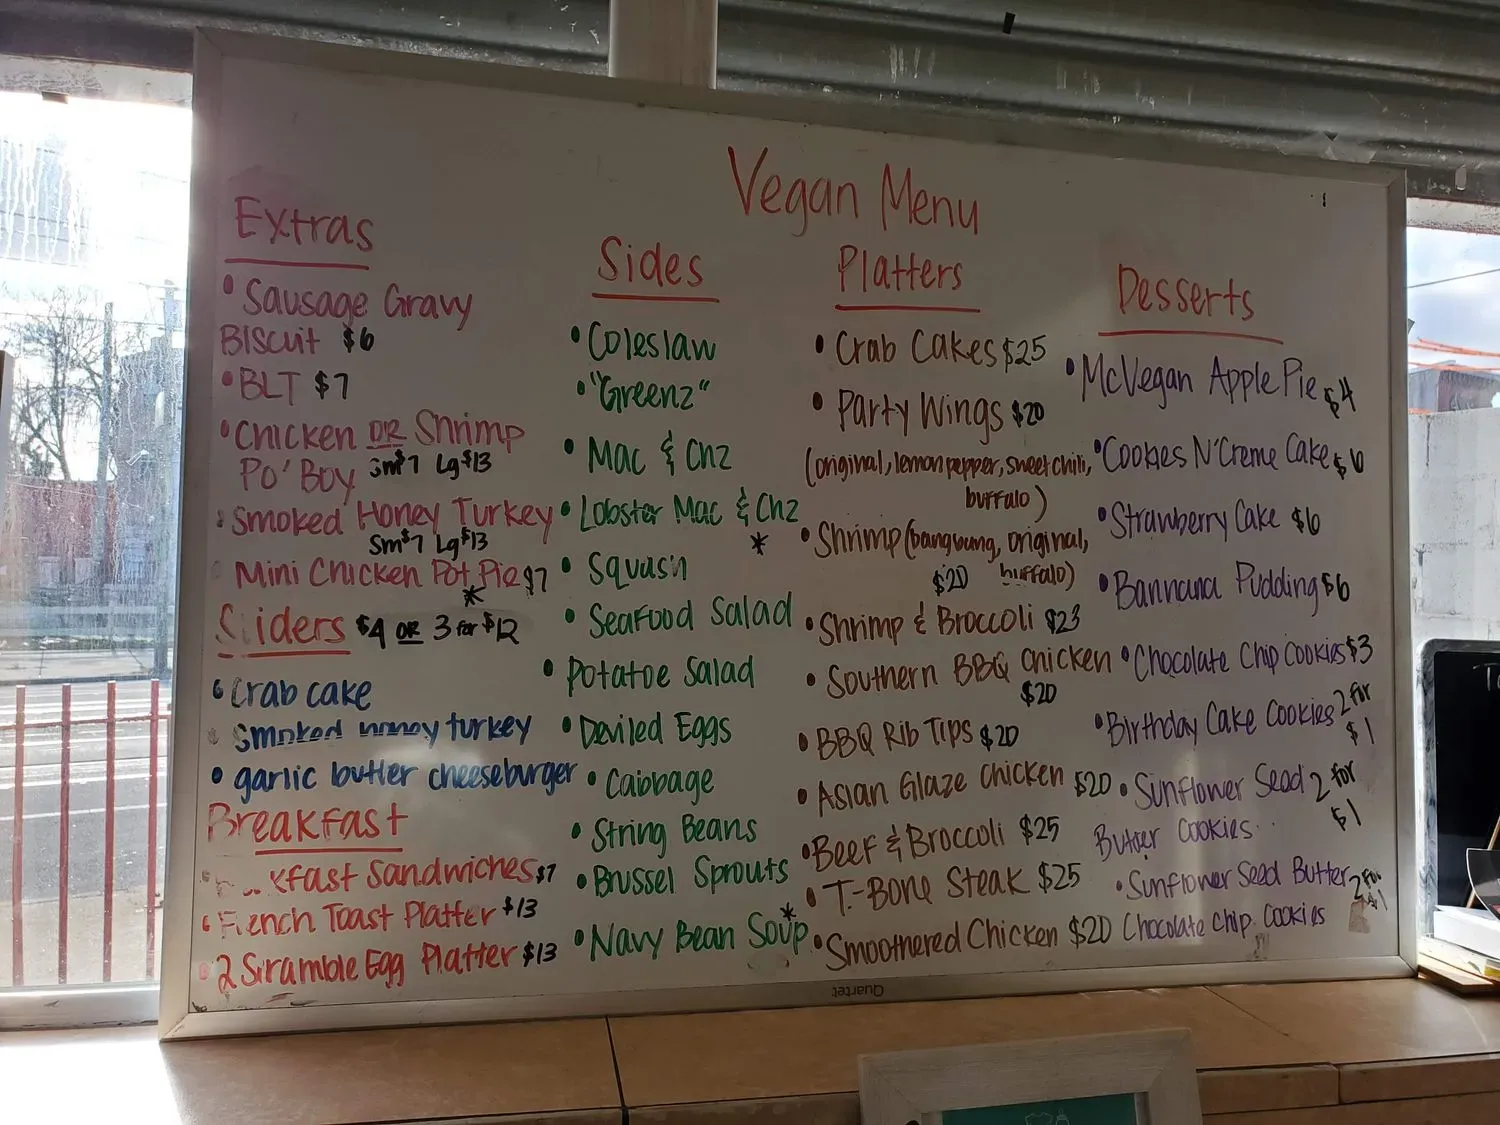 Vegan Menu
Extras
• Sausage Gravy
Biscuit $6
• BLT $7
• Chicken OR Shrimp
Po' Boy Sm $7 Lg $13
• Smoked Honey Turkey
Sm $7 Lg $13
Mini Chicken Pot Pie $7
*
Sliders $4 OR 3 for $12
• Crab cake
• Smoked honey turkey
• garlic butter cheeseburger
Breakfast
kfast Sandwiches $7
• French Toast Platter $13
• 2 Scramble Egg Platter $13
Sides
• Coleslaw
• "Greenz"
• Mac & Chz
• Lobster Mac & Chz
*
• Squash
• Seafood Salad
• Potatoe Salad
• Deviled Eggs
• Cabbage
• String Beans
• Brussel Sprouts
• Navy Bean Soup *
Platters
• Crab Cakes $25
• Party Wings $20
(original, lemon pepper, sweet chili,
buffalo)
• Shrimp (bangbang, original,
$20 buffalo)
• Shrimp & Broccoli $23
• Southern BBQ Chicken
$20
• BBQ Rib Tips $20
• Asian Glaze Chicken $20
• Beef & Broccoli $25
• T-Bone Steak $25
• Smoothered Chicken $20
Desserts
• McVegan Apple Pie $4
• Cookies N' Creme Cake $6
• Strawberry Cake $6
• Bannana Pudding $6
• Chocolate Chip Cookies $3
• Birthday Cake Cookies 2 for
$1
• Sunflower Seed 2 for
Butter Cookies $1
• Sunflower Seed Butter 2 for
Chocolate Chip Cookies $1
Quartet